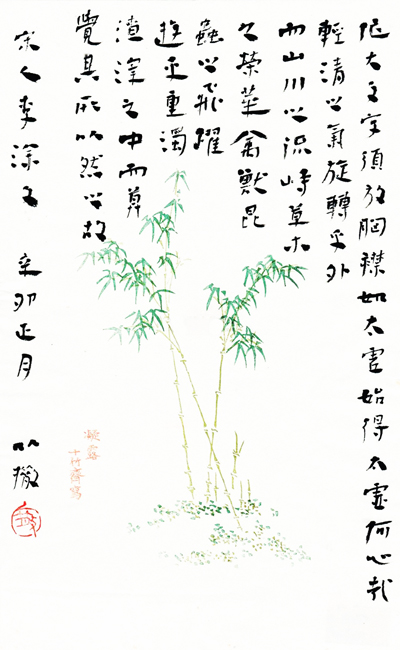 作大文字須放胸襟如太虛始得太虛何心哉
輕清之氣旋轉乎外
而山川之流峙草木
之榮華禽獸昆
蟲之飛躍
遊乎重濁
渣滓之中而莫
覺其所以然之故
宋人李塗文 辛卯正月 以撒
凝露
十竹齋寫